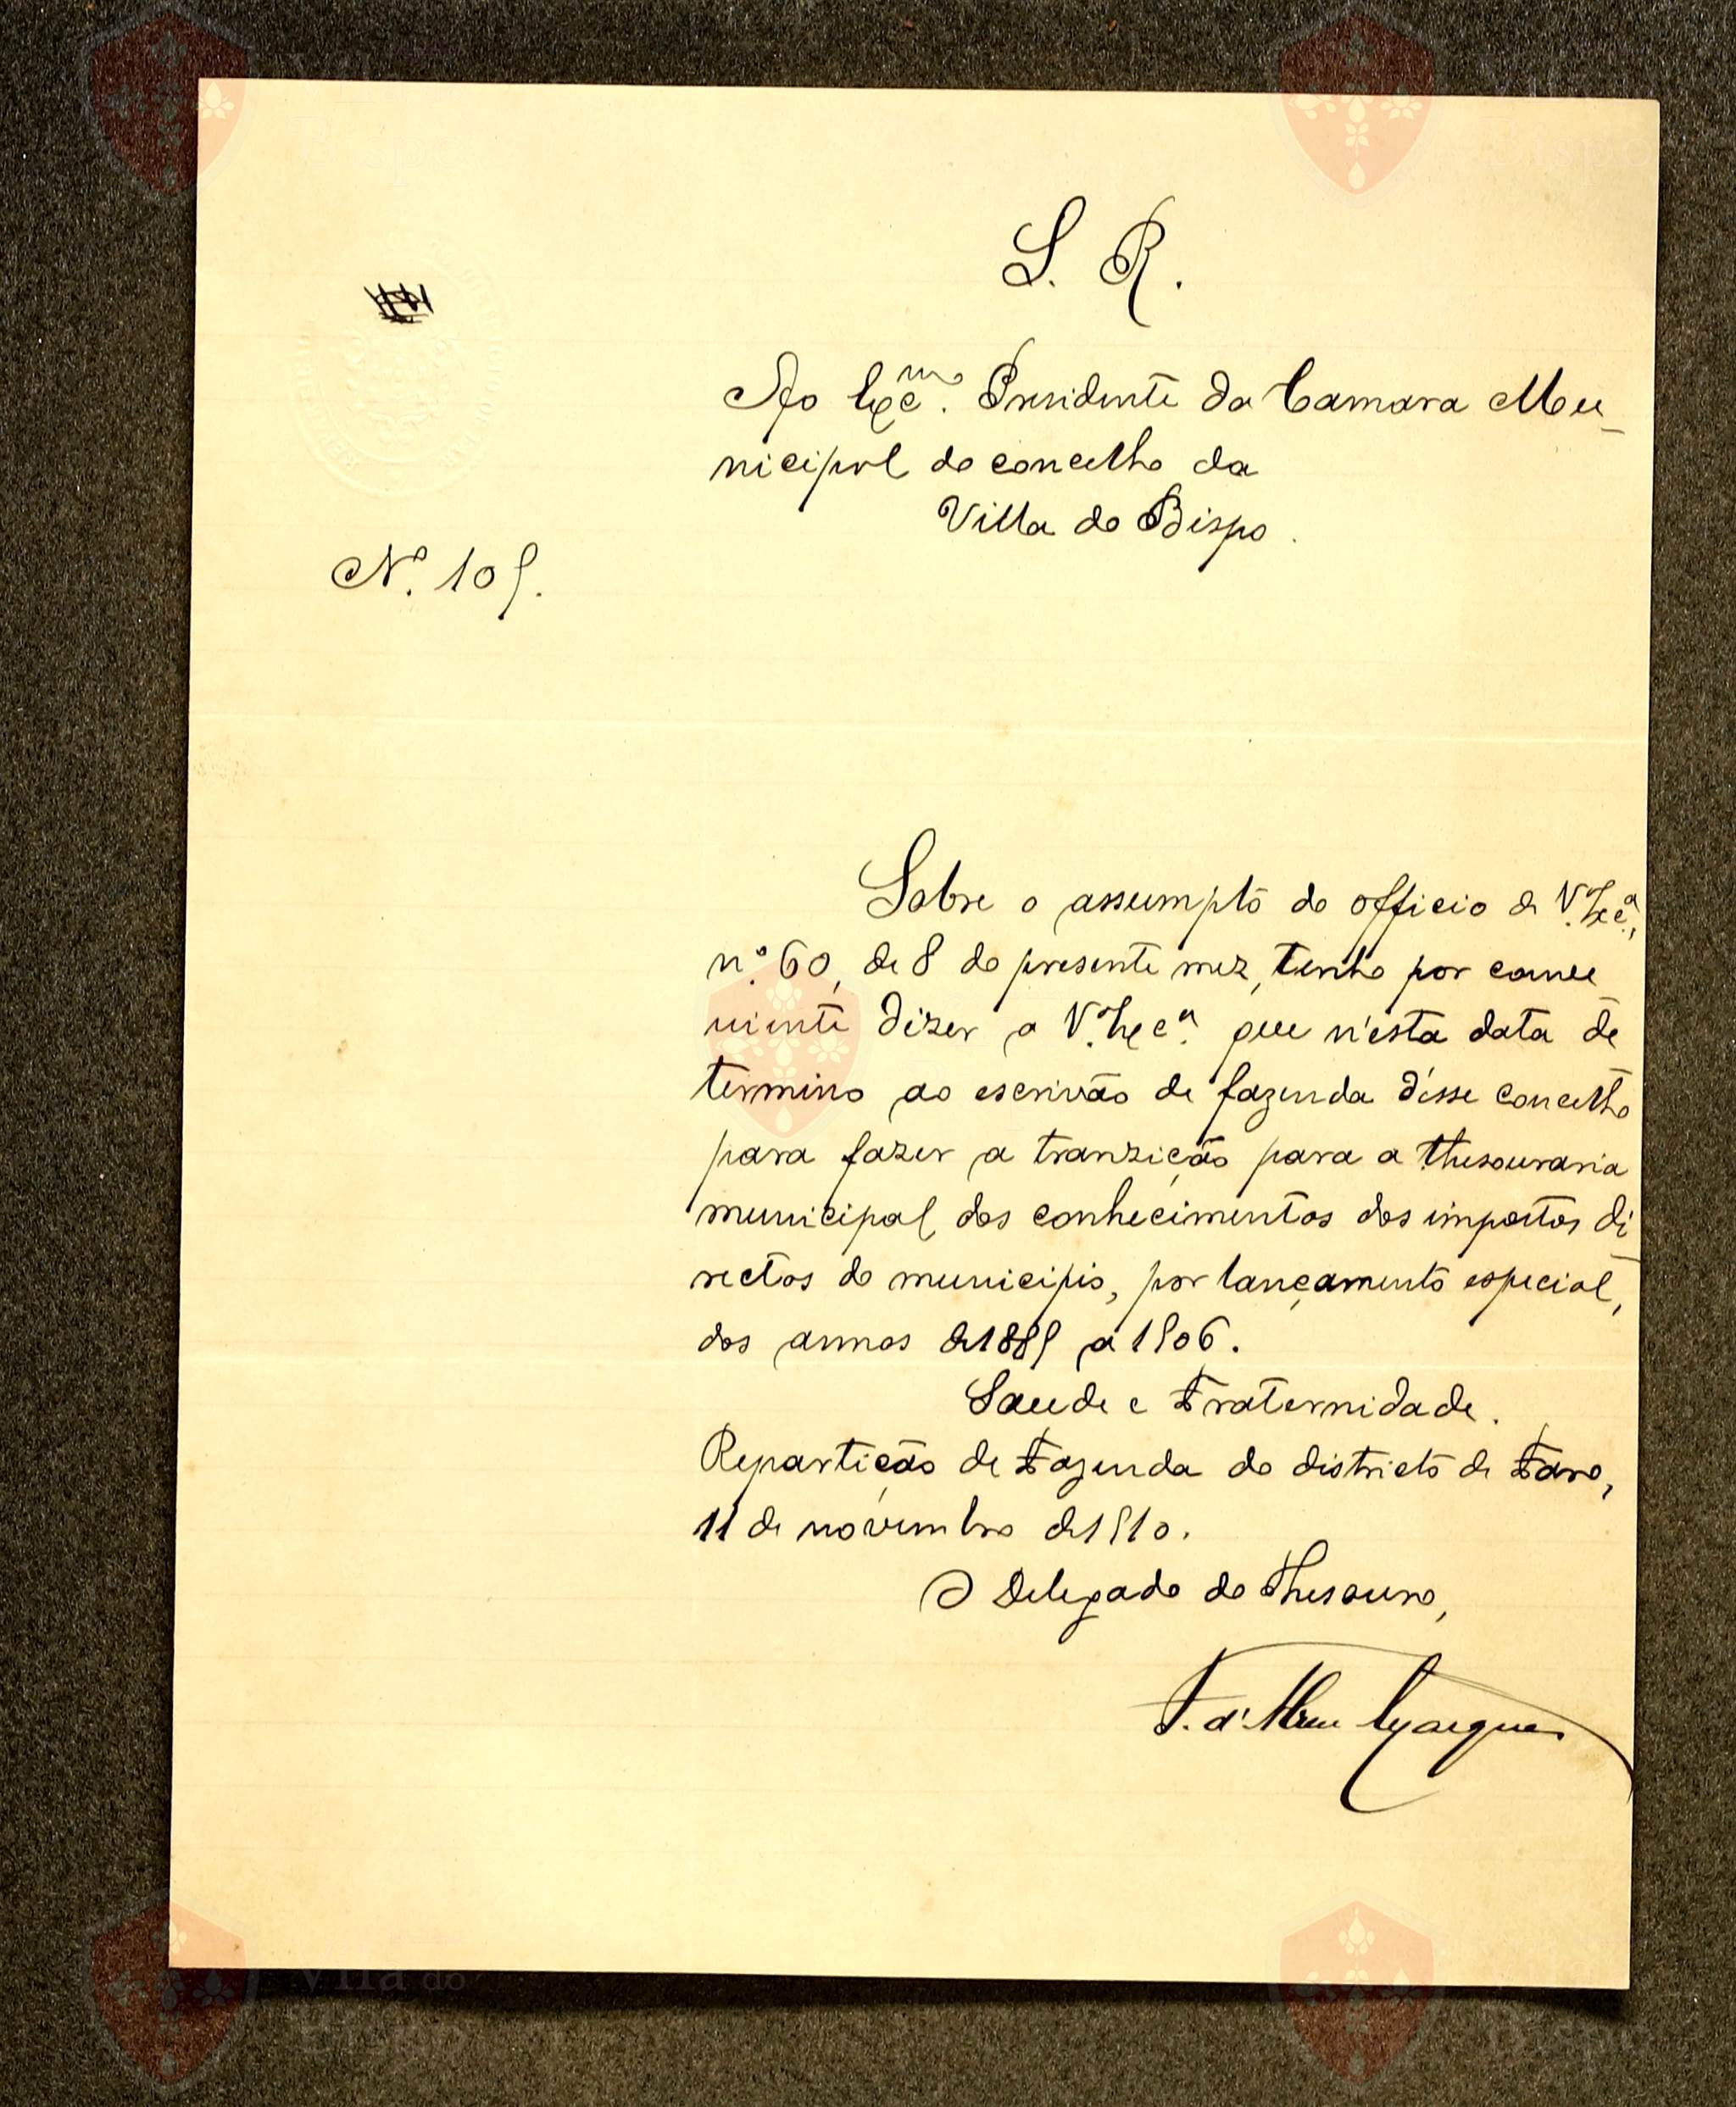 S. R.
Ao Exc.mo Presidente da Camara Mu-
nicipal do concelho da
Villa do Bispo.
N.º 109.
Sobre o assumpto do officio de V. Exc.ª,
n.º 60, de 8 do presente mez, tenho por conve
niente dizer a V. Exc.ª que n'esta data de
termino ao escrivão de fazenda d'esse concelho
para fazer a tranzição para a thesouraria
municipal, dos conhecimentos dos impostos di
rectos do municipio, por lançamento especial,
dos annos de 1889 a 1906.
Saude e Fraternidade.
Repartição de Fazenda do districto de Faro,
11 de novembro de 1910.
O Delegado do Thesouro,
F. d'Abreu Marques
Vila do
Bispo